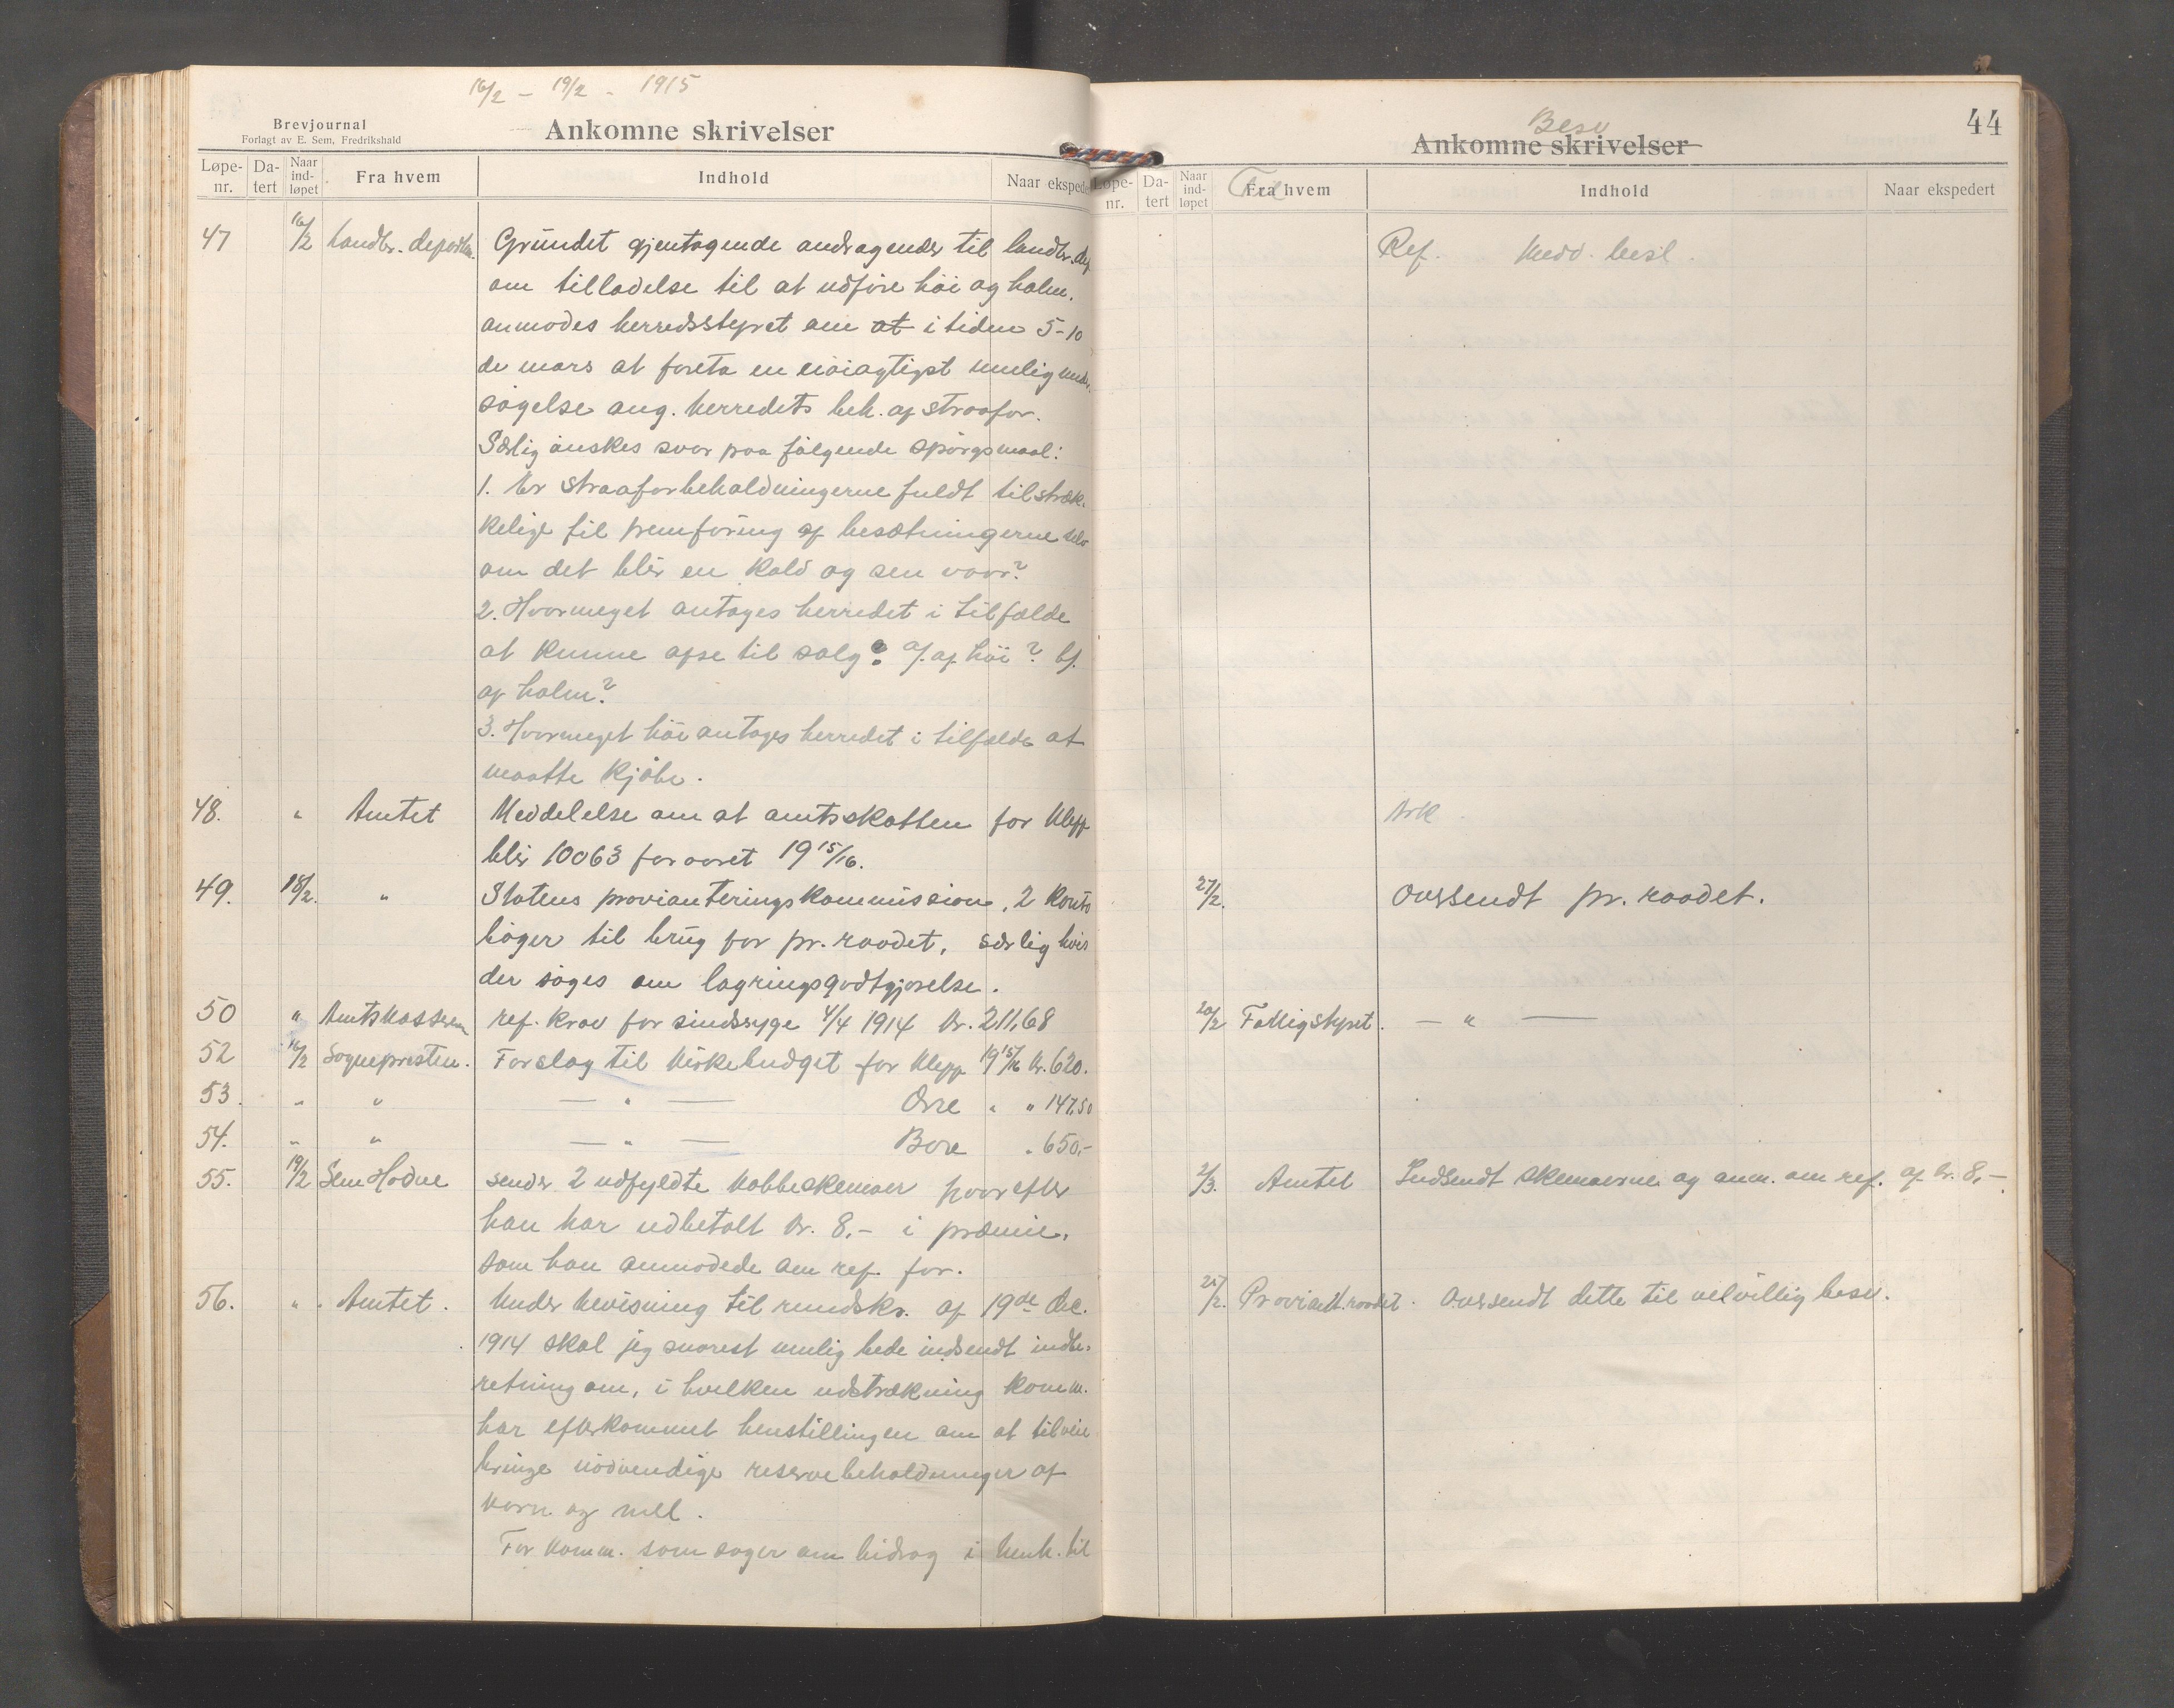 16/2 – 19/2 - 1915
Brevjournal
Forlagt av E. Sem, Fredrikshald
Ankomne skrivelser
Løpe-nr. Da-tert Naar ind-løpet Fra hvem Indhold Naar ekspede
47 16/2 Landbr. departm. Grundet gjentagende andragender til landbr. dep
om tilladelse til at udføre höi og halm.
anmodes herredsstyret om at i tiden 5-10
de mars at foreta en nöiagtigst mulig under-
søgelse ang. herredets beh. af straafor.
Særlig ønskes svar paa følgende spørgsmaal:
1. Er straaforbeholdningerne fuldt tilstræk-
kelige til fremforing af besætningerne selv
om det blir en kold og sen vaar?
2. Hvormeget antages herredet i tilfælde
at kunne afse til salg? a/. af höi? b/.
af halm?
3. Hvormeget höi antages herredet i tilfælde at
maatte kjøbe.
48. " Amtet Meddelelse om at amtsskatten for Klepp
blir 10063 for aaret 1915/16.
49. 18/2. " Statens provianteringskommission, 2 konto
böger til brug for pr. raadet, særlig hvis
der søges om lagringsgodtgjørelse.
50 " Amtskasseren ref. krav for sindssyge 4/4 1914 kr. 211,68
52 16/2 Sognepresten. Forslag til kirkebudget for Klepp 1915/16 kr. 620.
53. " " — " — Orre " " 147,50
54. " " — " — Bore " 650,-
55. 19/2 Sem Hodne sender 2 udfyldte kobbeskemaer hvorefter
han har udbetalt kr. 8,- i præmie,
som han anmodede om ref. for.
56. " Amtet. Under henvisning til rundskr. af 19de dec.
1914 skal jeg snarest mulig bede indsendt indbe-
retning om, i hvilken udstrækning komm.
har efterkommet henstillingen om at tilveie
bringe nödvendige reservebeholdninger af
korn og mel.
For komm. som søger om bidrag i henh. til
44
Besv
Ankomne skrivelser
Løpe-nr. Da-tert Naar ind-løpet Fra hvem Indhold Naar ekspedert
Til
Ref. Medd. besl.
Ark
27/2. Oversendt pr. raadet.
20/2 Fattigstyret. — " —
2/3. Amtet Indsendt skemaerne og anm. om ref. af kr. 8,-
25/2. Proviant.raadet. Oversendt dette til velvillig besv.